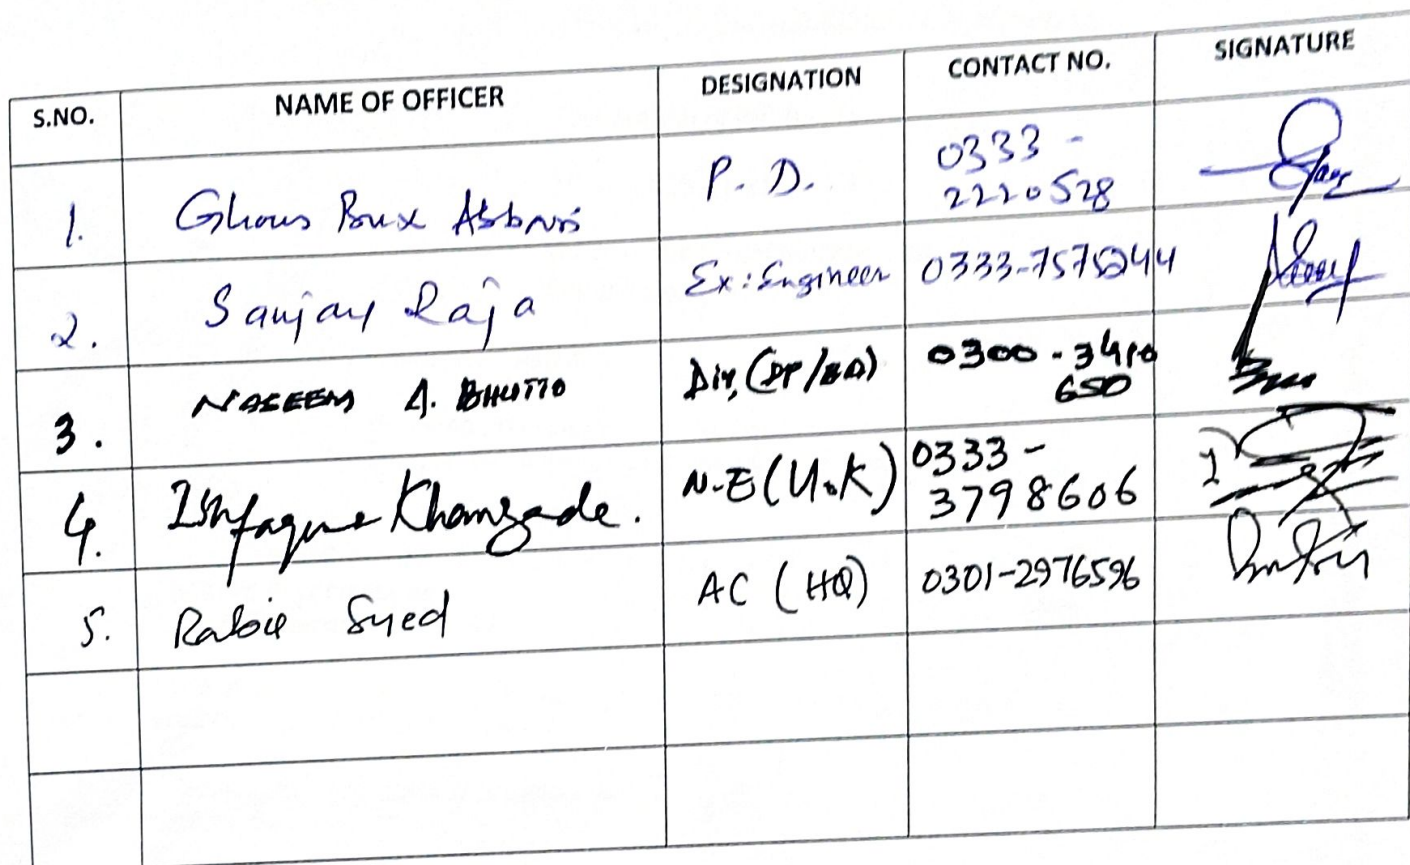 S.NO. NAME OF OFFICER DESIGNATION CONTACT NO. SIGNATURE
1. Ghous Bux Abbasi P. D. 0333 -
2220528
2. Sanjay Raja Ex: Engineer 0333-7575244
3. NASEEM A. BHUTTO Dir, 0300 - 3410
650
4. Ishfaque Khamzade. N.E (U.K) 0333 -
3798606
5. Rabie Syed AC (HQ) 0301-2976596